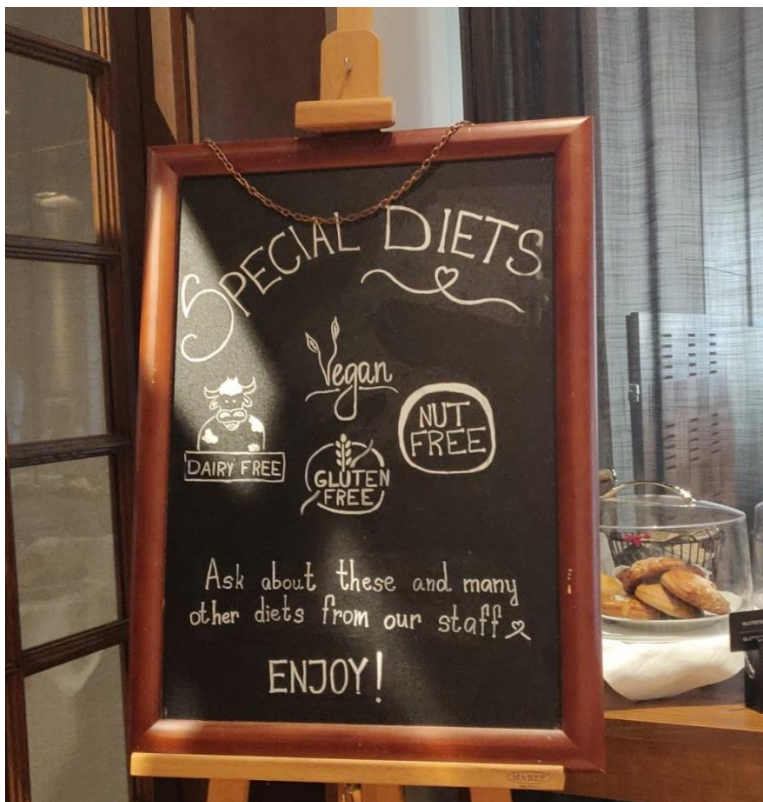 SPECIAL DIETS
Vegan
DAIRY FREE
NUT
FREE
GLUTEN
FREE
Ask about these and many
other diets from our staff
ENJOY!
MABEF